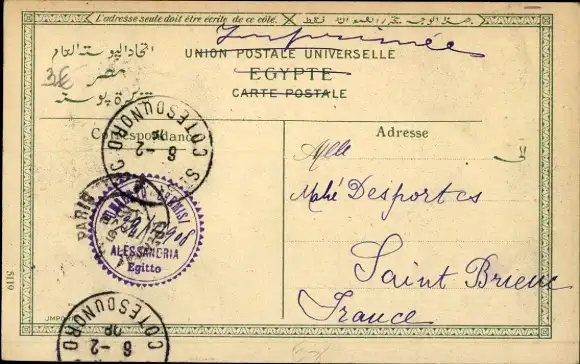 L'adresse seule doit être écrite de ce côté.
Imprimée
UNION POSTALE UNIVERSELLE
EGYPTE
CARTE POSTALE
اتحاد البوستة العام
مصر
تذكرة بوستة
3€
Correspondance
Adresse
الى
COTES DU NORD
8-2
08
PARIS
ALESSANDRIA
Egitto
Mlle
Mahé Desportes
Saint Brieuc
France
5119
COTES DU NORD
8-2
08